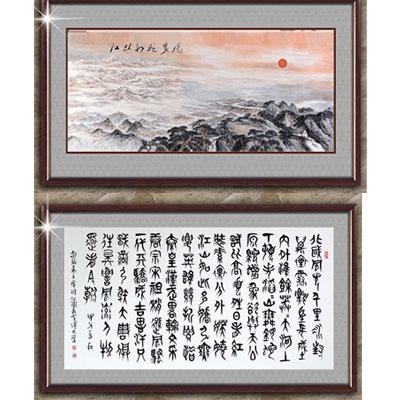 江山如此多嬌
北國風光千里冰封
萬里雪飄望長城
內外惟餘莽莽大河上
下頓失滔滔山舞銀蛇
原馳蠟象欲與天公
試比高須晴日看紅
裝素裹分外妖嬈
江山如此多嬌引無
數英雄競折腰惜
秦皇漢武略輸文采
唐宗宋祖稍遜風騷
一代天驕成吉思汗
只識彎弓射大雕俱
往矣數風流人物
還看今朝 甲午年秋